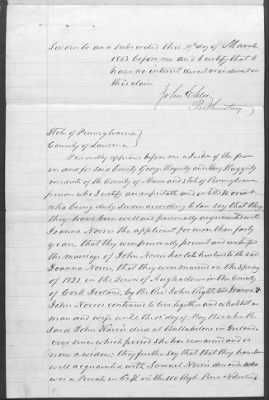 Sworn to and subscribed this day of March
1863 before me and I certify that I
have no interest direct or indirect in
this claim
John
Prothonotary
State of Pennsylvania
County of Lawrence
Personally appeared before me a Justice of the peace
in and for said County George Hagerty and Mary Haggerty
residents of the County of and State of Pennsylvania
persons who I certify are respectable and entitled to credit
who being duly sworn according to law say that they
they have been well and personally acquainted with
Joanna Norris the applicant for more than forty
years, that they were personally present and witnessed
the marriage of John Norris her late husband to the said
Joanna Norris that they were married on the spring
of 1831 in the Town of in the County
of Cork Ireland, by the Rev. John and Joanna &
John Norris continued to live together and cohabit as
man and wife until the day of May when the
said John Norris died at in Ireland
ever since which period she has remained and is
now a widow; they further say that they has been
well acquainted with Samuel Norris deceased who
was a Private in Co. H in the 100 Regt Penna Volunteers